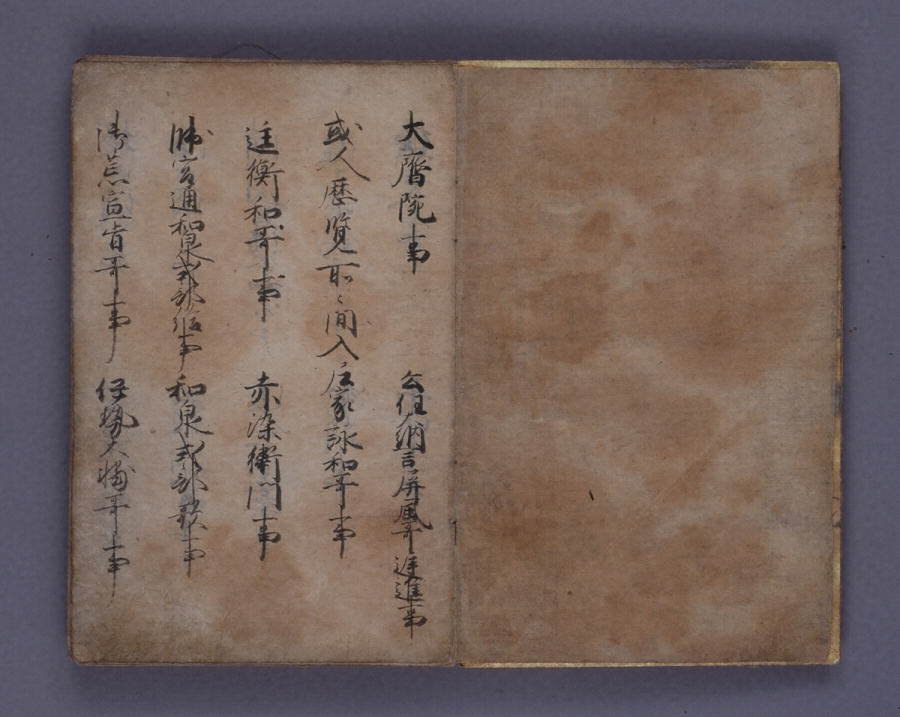 大齋院事　公任大納言屏風哥遅進事
或人歴覧所〻間入尼家詠和哥事
匡衡和哥事　赤染衛門事
帥宮通和泉式部給事　和泉式部歌事
御荒宣旨哥事　伊勢大輔哥事